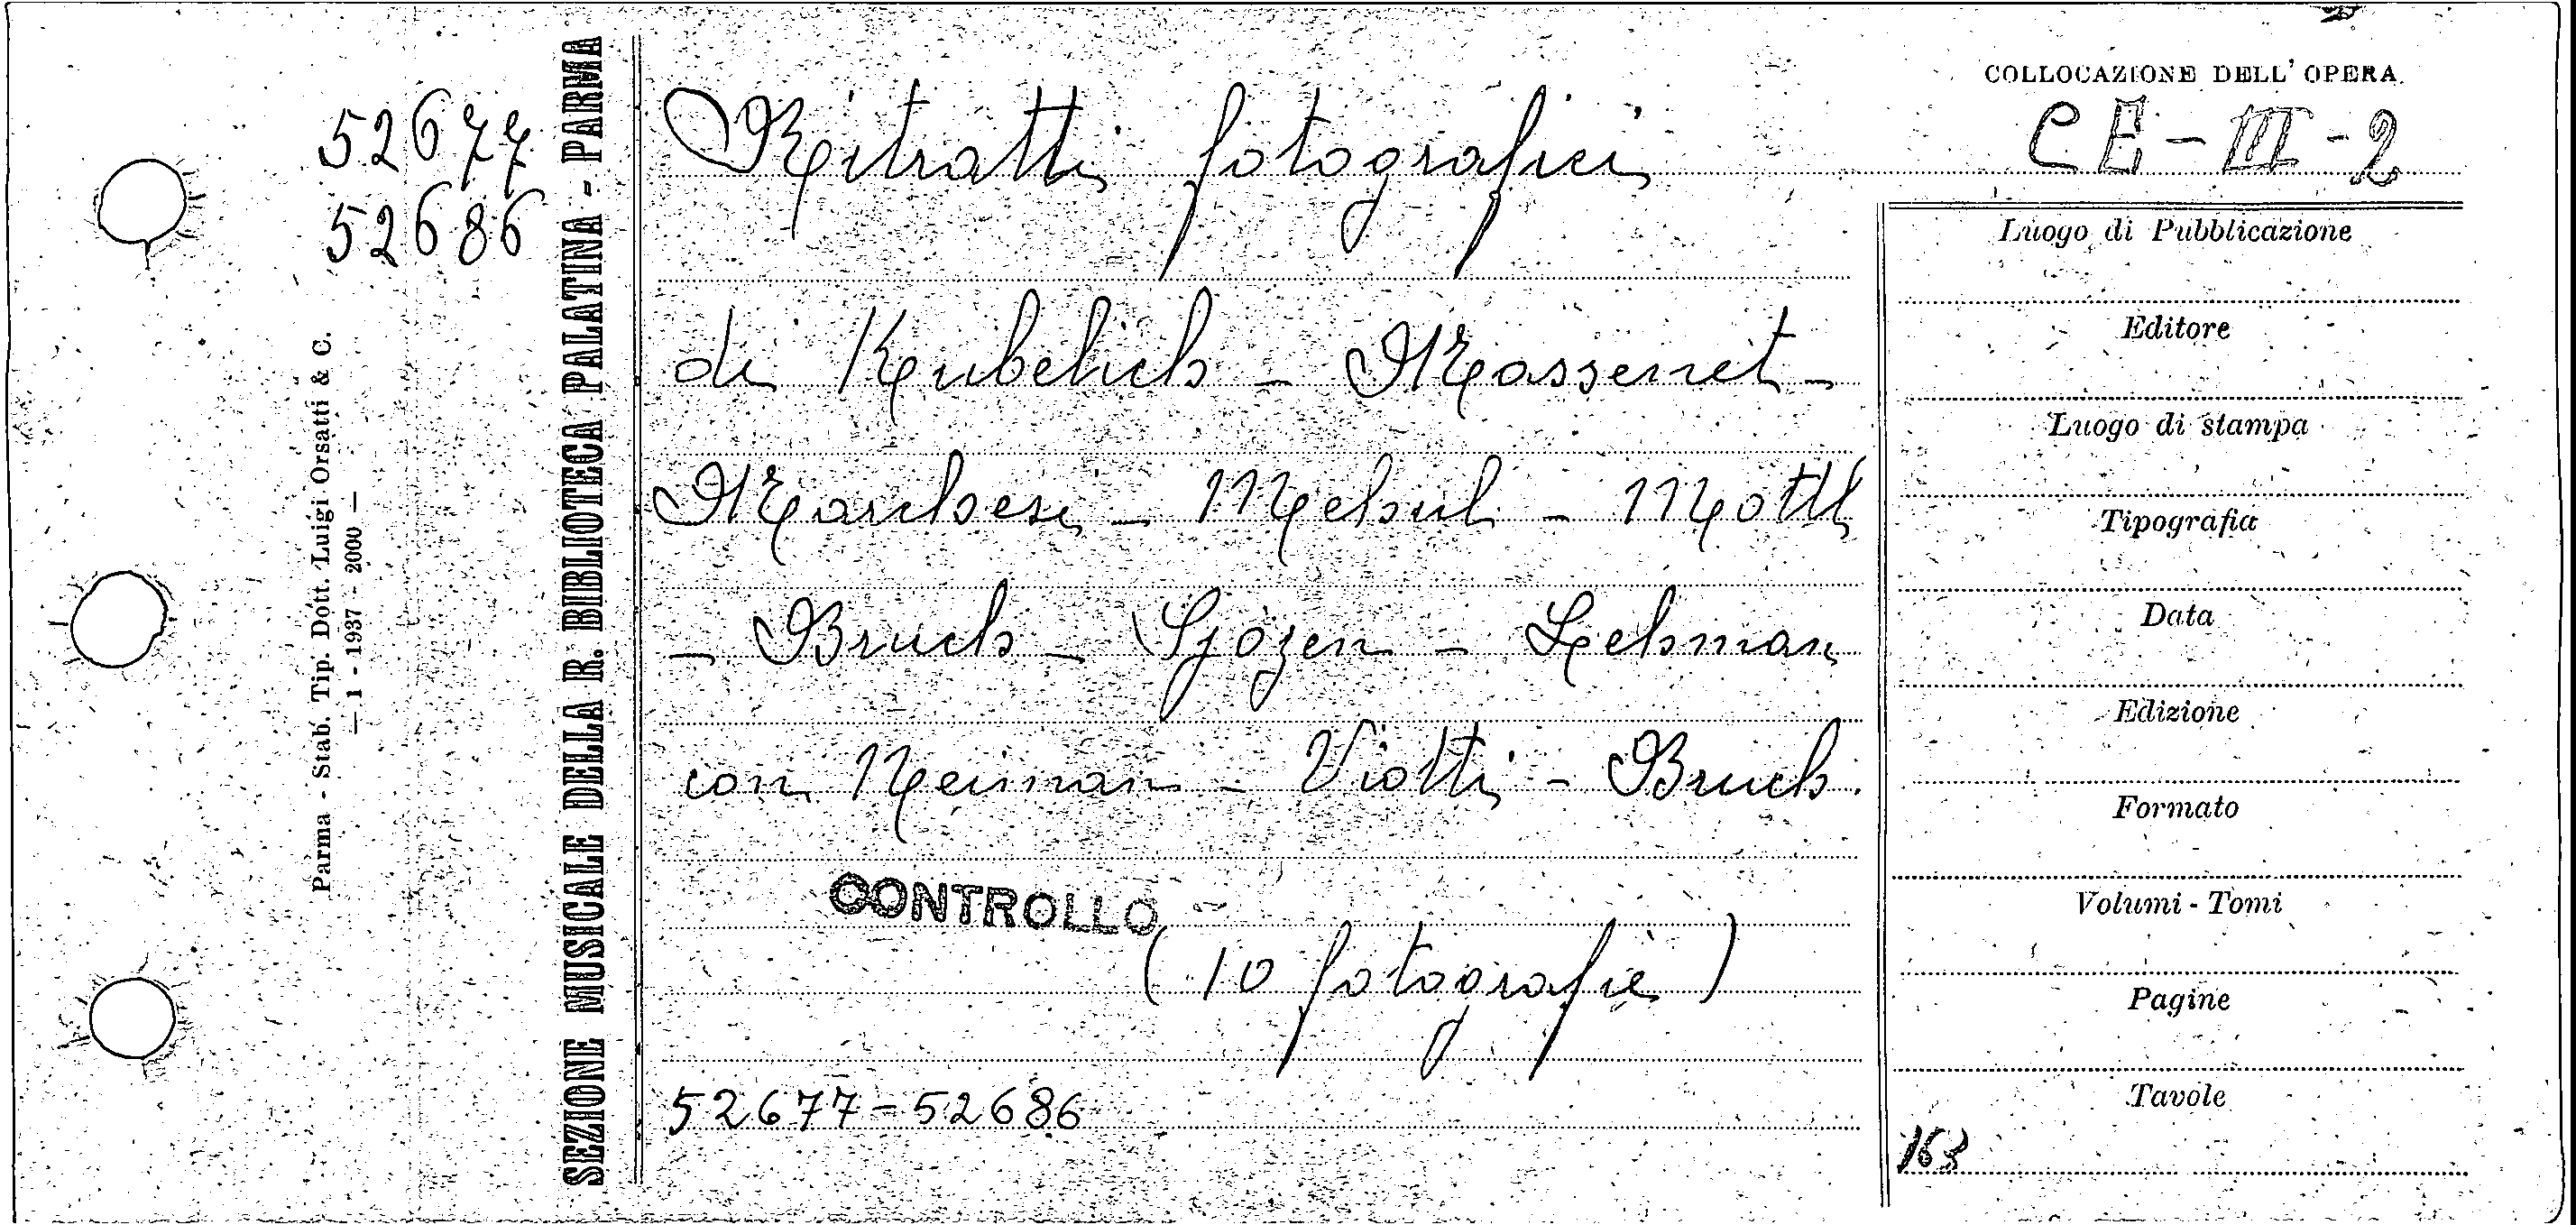 52677
52686
Parma - Stab. Tip. Dott. Luigi Orsatti & C.
— 1 - 1937 - 2000 —
SEZIONE MUSICALE DELLA R. BIBLIOTECA PALATINA - PARMA
Ritratti fotografici
di Kubelich - Massenet -
Marchesi - Mehul - Mottl
- Bruch - Sjögen - Lehman
con Neiman - Viotti - Bruch.
CONTROLLO
(10 fotografie)
52677-52686
COLLOCAZIONE DELL'OPERA
CE-III-2
Luogo di Pubblicazione
Editore
Luogo di stampa
Tipografia
Data
Edizione
Formato
Volumi - Tomi
Pagine
Tavole
163